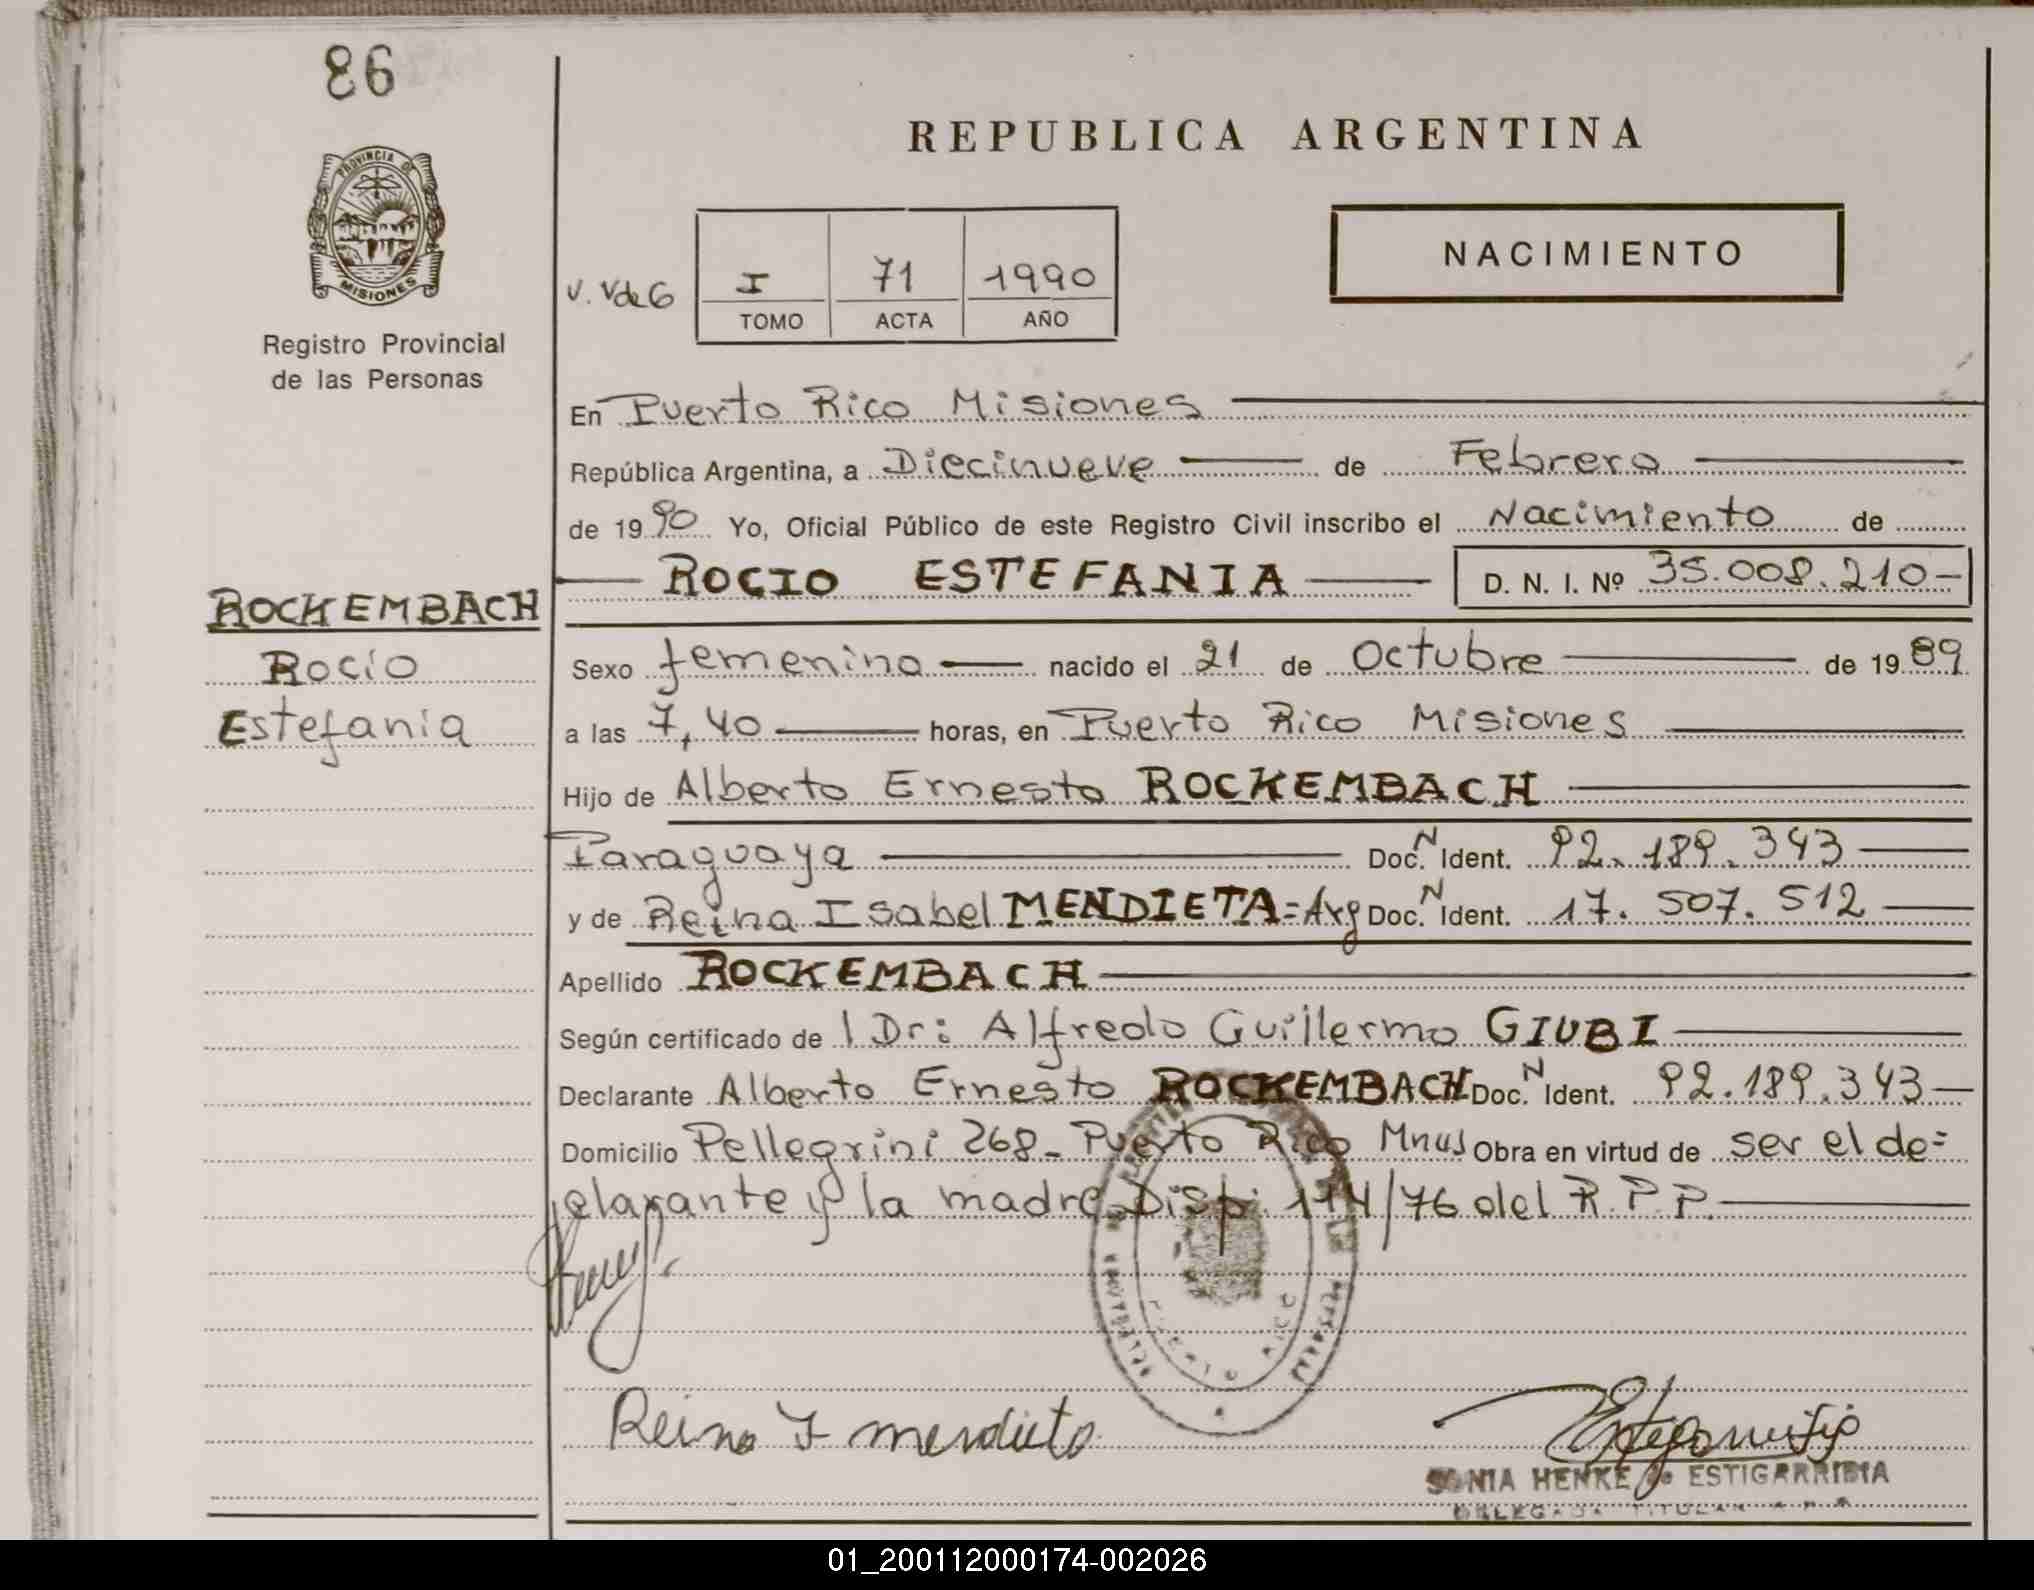 86
PROVINCIA DE
MISIONES
Registro Provincial
de las Personas
ROCKEMBACH
Rocío
Estefania
REPUBLICA ARGENTINA
NACIMIENTO
V. Vde G
I 71 1990
TOMO ACTA AÑO
En Puerto Rico Misiones
República Argentina, a Diecinueve de Febrero
de 1990 Yo, Oficial Público de este Registro Civil inscribo el Nacimiento de
ROCIO ESTEFANIA D. N. I. Nº 35.008.210-
Sexo femenino nacido el 21 de Octubre de 1989
a las 7,40 horas, en Puerto Rico Misiones
Hijo de Alberto Ernesto ROCKEMBACH
Paraguaya Doc. N Ident. 92.189.343
y de Reina Isabel MENDIETA=Arg Doc. N Ident. 17.507.512
Apellido ROCKEMBACH
Según certificado de l Dr: Alfredo Guillermo GIUBI
Declarante Alberto Ernesto ROCKEMBACH Doc. N Ident. 92.189.343
Domicilio Pellegrini 268- Puerto Rico Mnes Obra en virtud de ser el de=
clarante y la madre Disp. 114/76 del R.P.P.
PUERTO RICO
Reina I mendieta
SONIA HENKE de ESTIGARRIBIA
DELEGADA TITULAR
01_200112000174-002026